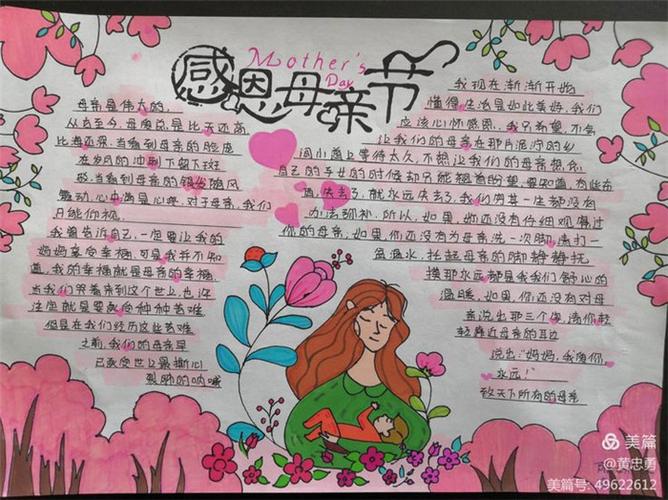 Mother's
Day
感恩母亲节
母亲是伟大的，
从古至今，母爱总是比天还高，
比海还深，当看到母亲的脸庞
在岁月的冲刷下留下斑
斑，当看到母亲的银发随风
舞动，心中满是心疼，对于母亲，我们
只能仰视，
我曾告诉自己，一定要让我的
妈妈享受幸福，可是我并不知
道，我的幸福就是母亲的幸福，
当我们哭着来到这个世上，也许
注定就是要承受种种苦难
但是在我们经历这些苦难
之前，我们的母亲早
已承受世上最撕心
裂肺的呐喊
我现在渐渐开始
懂得生活是如此美好，我们
应该心怀感恩，我只希望，不会
让我们的母亲在那片泥泞的乡
间小道上等待太久，不想让我们的母亲想念
自己的子女的时候却只能翘首盼望，要知道，有些东
西，失去了，就永远失去了，我们用其一生都没有
办法弥补，所以，如果，你还没有仔细观看过
你的母亲，如果，你还没有为母亲洗一次脚，请打一
盆温水，托起母亲的脚静静抚
摸那永远都是我我们舒心的
温暖，如果，你还没有对母
亲说出那三个字，请你轻
轻靠近母亲的耳边
说出：“妈妈，我爱你，
永远！”
致天下所有的母亲
美篇
@黄忠勇
美篇号：49622612